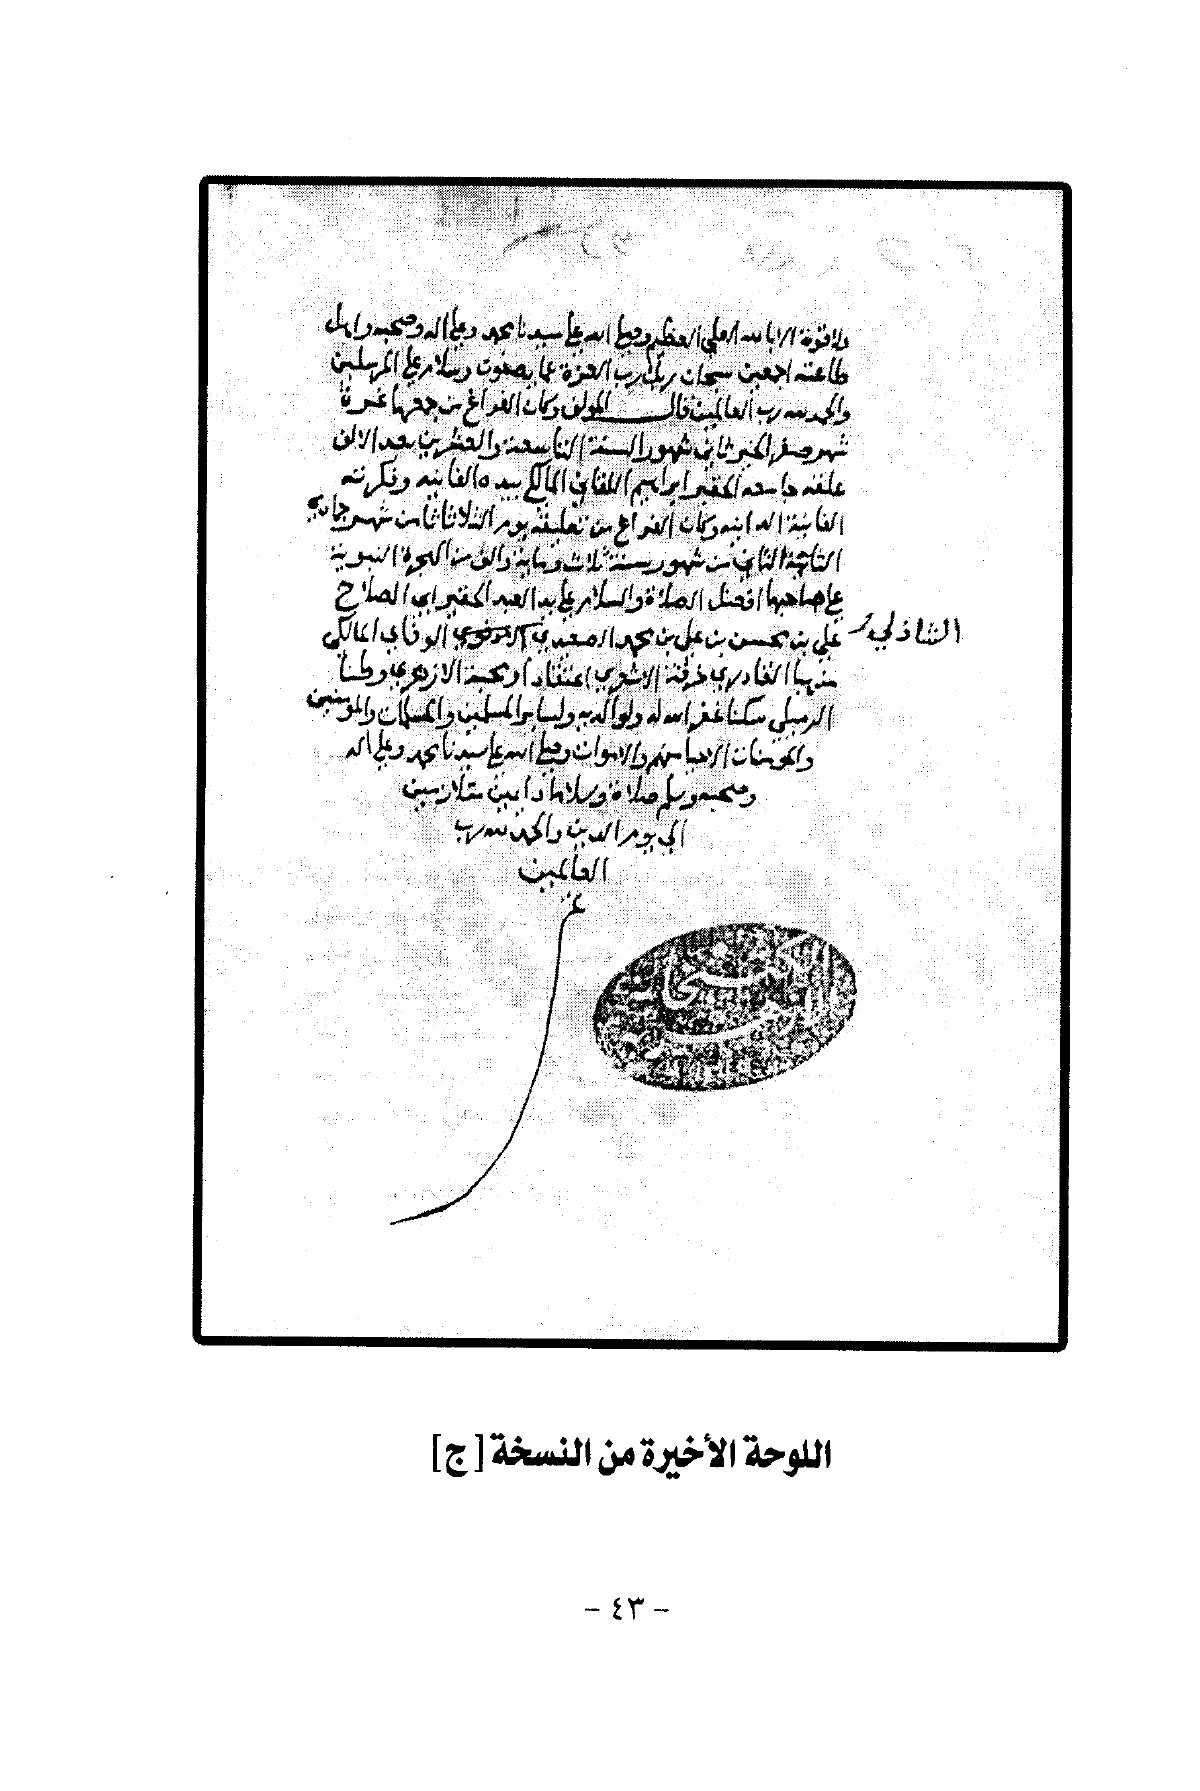 ولا قوة الا بالله العلي العظيم وصلى الله على سيدنا محمد وعلى اله وصحبه واهل
طاعته اجمعين سبحان ربك رب العزة عما يصفون وسلام على المرسلين
والحمد لله رب العالمين قال المولف وكان الفراغ من جمعها غرة
شهر صفر الخير ثاني شهور السنة التاسعة والعشرين بعد الالف
علقه جامعه الحقير ابراهيم اللقاني المالكي بيده الفانيه وفكرته
الفانية وكان الفراغ من تعليقه يوم الثلاثا من شهر جمادي
الثاني من شهور سنة ثلاث وماية والف من الهجرة النبوية
على صاحبها افضل الصلاة والسلام على يد العبد الحقير ابي الصلاح
علي بن محسن بن علي بن محمد الصعيدي الوفاي المالكي
الشاذلي
مذهبا القادري خرقة الاشعري اعتقادا ومحبة الازهري وطنا
الرميلي سكنا غفر الله له ولوالديه ولساير المسلمين والمسلمات والمومنين
والمومنات الاحيا منهم والاموات وصلى الله على سيدنا محمد وعلى اله
وصحبه وسلم صلاة وسلاما دايمين متلازمين
الي يوم الدين والحمد لله رب
العالمين
اللوحة الأخيرة من النسخة [ج]
- ٤٣ -